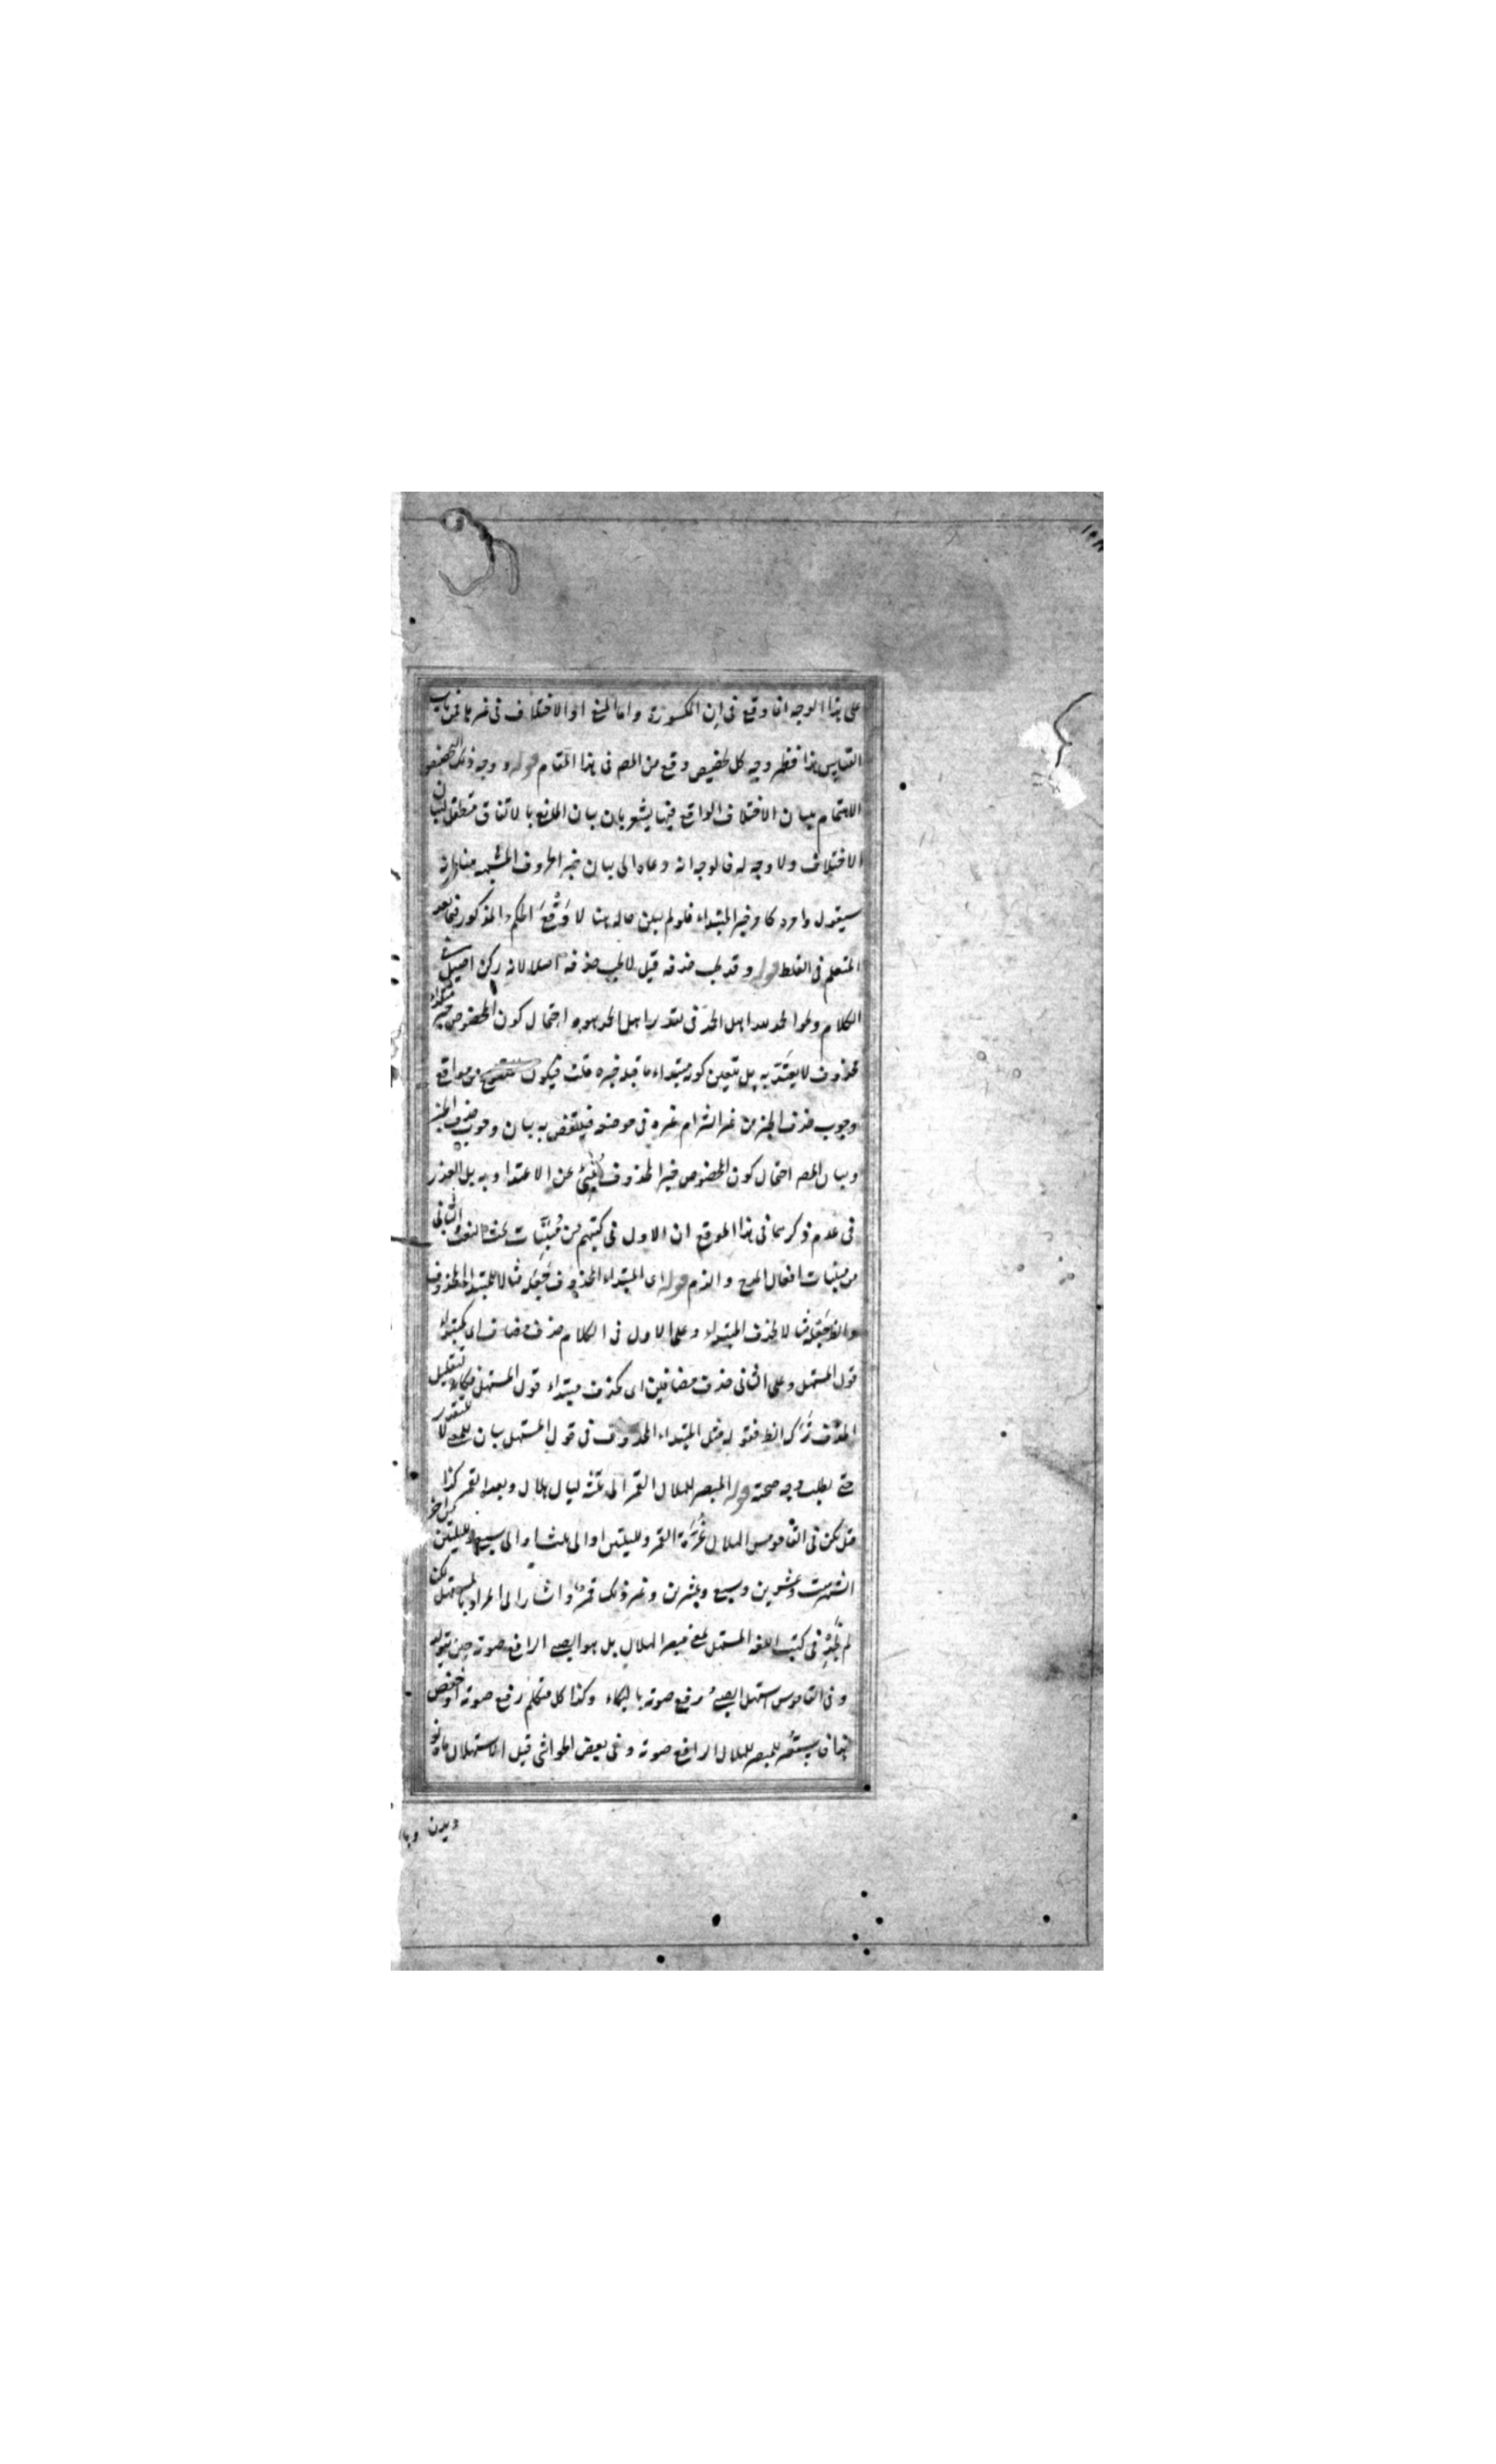 على هذا الوجه انما وقع فى ان المكسورة واما المنع او الاختلاف فى غيرها فمن باب
القياس هذا فظهر وجه كل تخصيص وقع من المص فى هذا المقام قوله ووجه ذلك التخصيص
الاهتمام ببيان الاختلاف الواقع فيها يشعر بان بيان المانع بالاتفاق متطفل لبيان
الاختلاف ولا وجه له فالوجه انه دعاه الى بيان خبر الحروف المشبهة
سيقول وامره كامر خبر المبتداء فلو لم يبين حاله هنا لا وقع الحكم المذكور فيما بعد
المتعلم فى الغلط قوله وقد يجب حذفه قيل لا يجب حذفه اصلا لانه ركن اصيل
الكلام ونحو الحمد لله اهل الحمد فى تقدير اهل الحمد هو واحتمال كون المخصوص خبر مبتداء
محذوف لا يعتد به بل تعين كونه مبتداء ما قبله خبره قلت فيكون من مواقع
وجوب حذف الخبر من غير التزام غيره فى موضعه فينتقض به بيان وجوب حذف الخبر
وبيان المص احتمال كون المخصوص خبر المحذوف ينبئ عن الاعتداد به بل العذر
فى عدم ذكرهما فى هذا الموقع ان الاول فى كتبهم من مبينات بحث النعت والثانى
من مبينات افعال المدح والذم قوله اى المبتداء المحذوف جعله مثالا للمبتداء المحذوف
والظ جعله مثالا لحذف المبتداء وعلى الاول فى الكلام حذف مضاف اى كمبتداء
قول المستهل وعلى الثانى حذف مضافين اى كحذف مبتداء قول المستهل فكان لتقليل
الحذف ترك الظ فقوله مثل المبتداء المحذوف فى قول المستهل بيان للمعنى لا للتقدير
حتى يطلب وجه صحته قوله المبصر للهلال القمر الى ثلثة ليال هلال وبعدها قمر كذا
قيل لكن فى القاموس الهلال غرة القمر وليلتين او الى ثلث او الى سبع ولليلتين من اخر
الشهر ست وعشرين وسبع وعشرين وغير ذلك قمر واشار الى المراد بالمستهل لكن
لم نجد فى كتب اللغة المستهل بمعنى مبصر الهلال بل هو الصبى الرافع صوته حين تولد
وفى القاموس استهل الصبى رفع صوته بالبكاء وكذا كل متكلم رفع صوته او خفض
للمبصر للهلال الرافع صوته وفى بعض الحواشى قيل الاستهلال